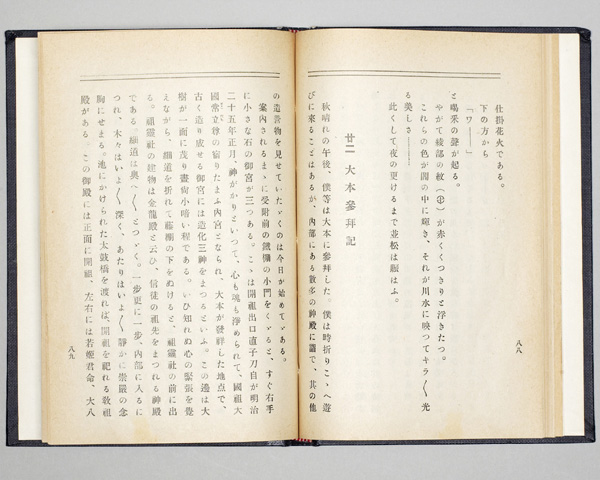 仕掛花火である。
下の方から
「ワ――」
と喝采の聲が起る。
やがて綾部の紋（㊉）が赤くくつきりと浮きたつ。
これらの色が闇の中に輝き、それが川水に映つてキラ〳〵光
る美しさ――
此くして夜の更けるまで並松は賑はふ。
廿二 大本參拜記
秋晴れの午後、僕等は大本に參拜した。僕は時折りこゝへ遊
びに來ることはあるが、內部にある數多の神殿に詣で、其の他
八八
の造營物を見せていたゞくのは今日が始めてゞある。
案內されるまゝに受附前の鐵柵の小門をくゞると、すぐ右手
に小さな石の御宮が三つある。こゝは開祖出口直子刀自が明治
二十五年正月、神がかりといつて、心も魂も淨められて、國祖大
國常立尊の宿りたまふ內宮となられ、大本が發祥した地點で、
古く造り成せる御宮には造化三神をまつるといふ。この邊は大
樹が一面に茂り晝尙小暗い程である。いひ知れぬ心の緊張を覺
えながら、細道を折れて藤棚の下をぬけると、祖靈社の前に出
る。祖靈社の建物は金龍殿と云ひ、信徒の祖先をまつれる神殿
である。細道は奧へ〳〵とつゞく。一步更に一步、內部に入るに
つれ、木々はいよ〳〵深く、あたりはいよ〳〵靜かに崇嚴の念
胸にせまる。池にかけられた太鼓橋を渡れば、開祖を祀れる敎祖
殿がある。この御殿には正面に開祖、左右には若姬君命、大八
八九